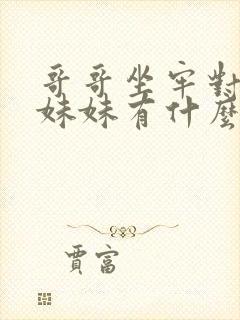 哥哥坐牢對
妹妹有什麼
賈富